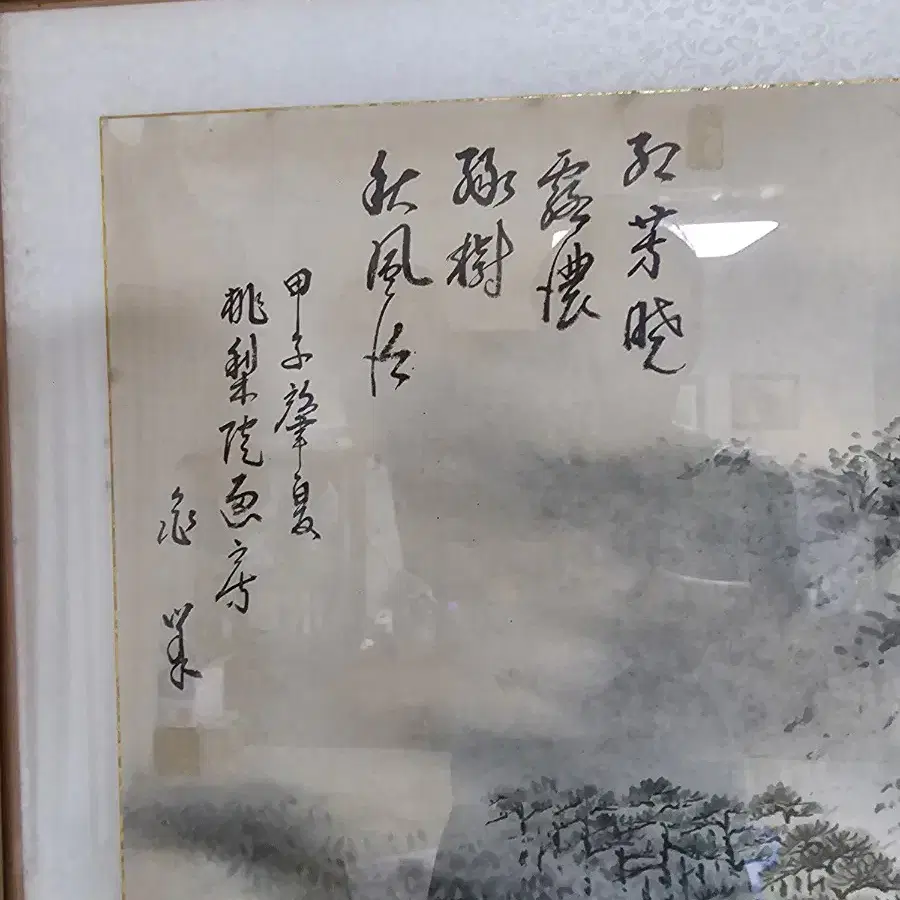 紅芳曉
露濃
綠樹
秋風冷
甲子肇夏
桃梨院